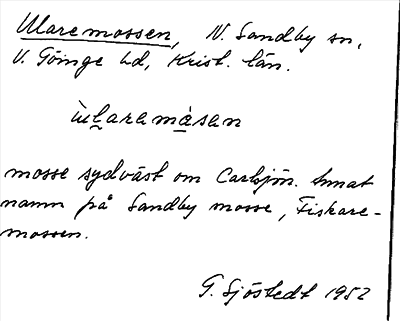 Ularemossen, N. Sandby sn,
V. Göinge hd, Krist. län.
ùḷaramàsan
mosse sydväst om Carlsjön. Annat
namn på Sandby mosse, Fiskare-
mossen.
G. Sjöstedt 1952